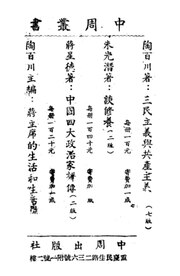 中周叢書
陶百川著：三民主義與共產主義（七版）
每冊一百元 寄費加一成
朱光潛著：談修養（二版）
每冊一百四十元 寄費加一成
蔣星德著：中國四大政治家評傳（二版）
每冊一百二十元 寄費加一成
陶百川主編：蔣主席的生活和生活觀
中周出版社
重慶民生路二三六號附一號二樓